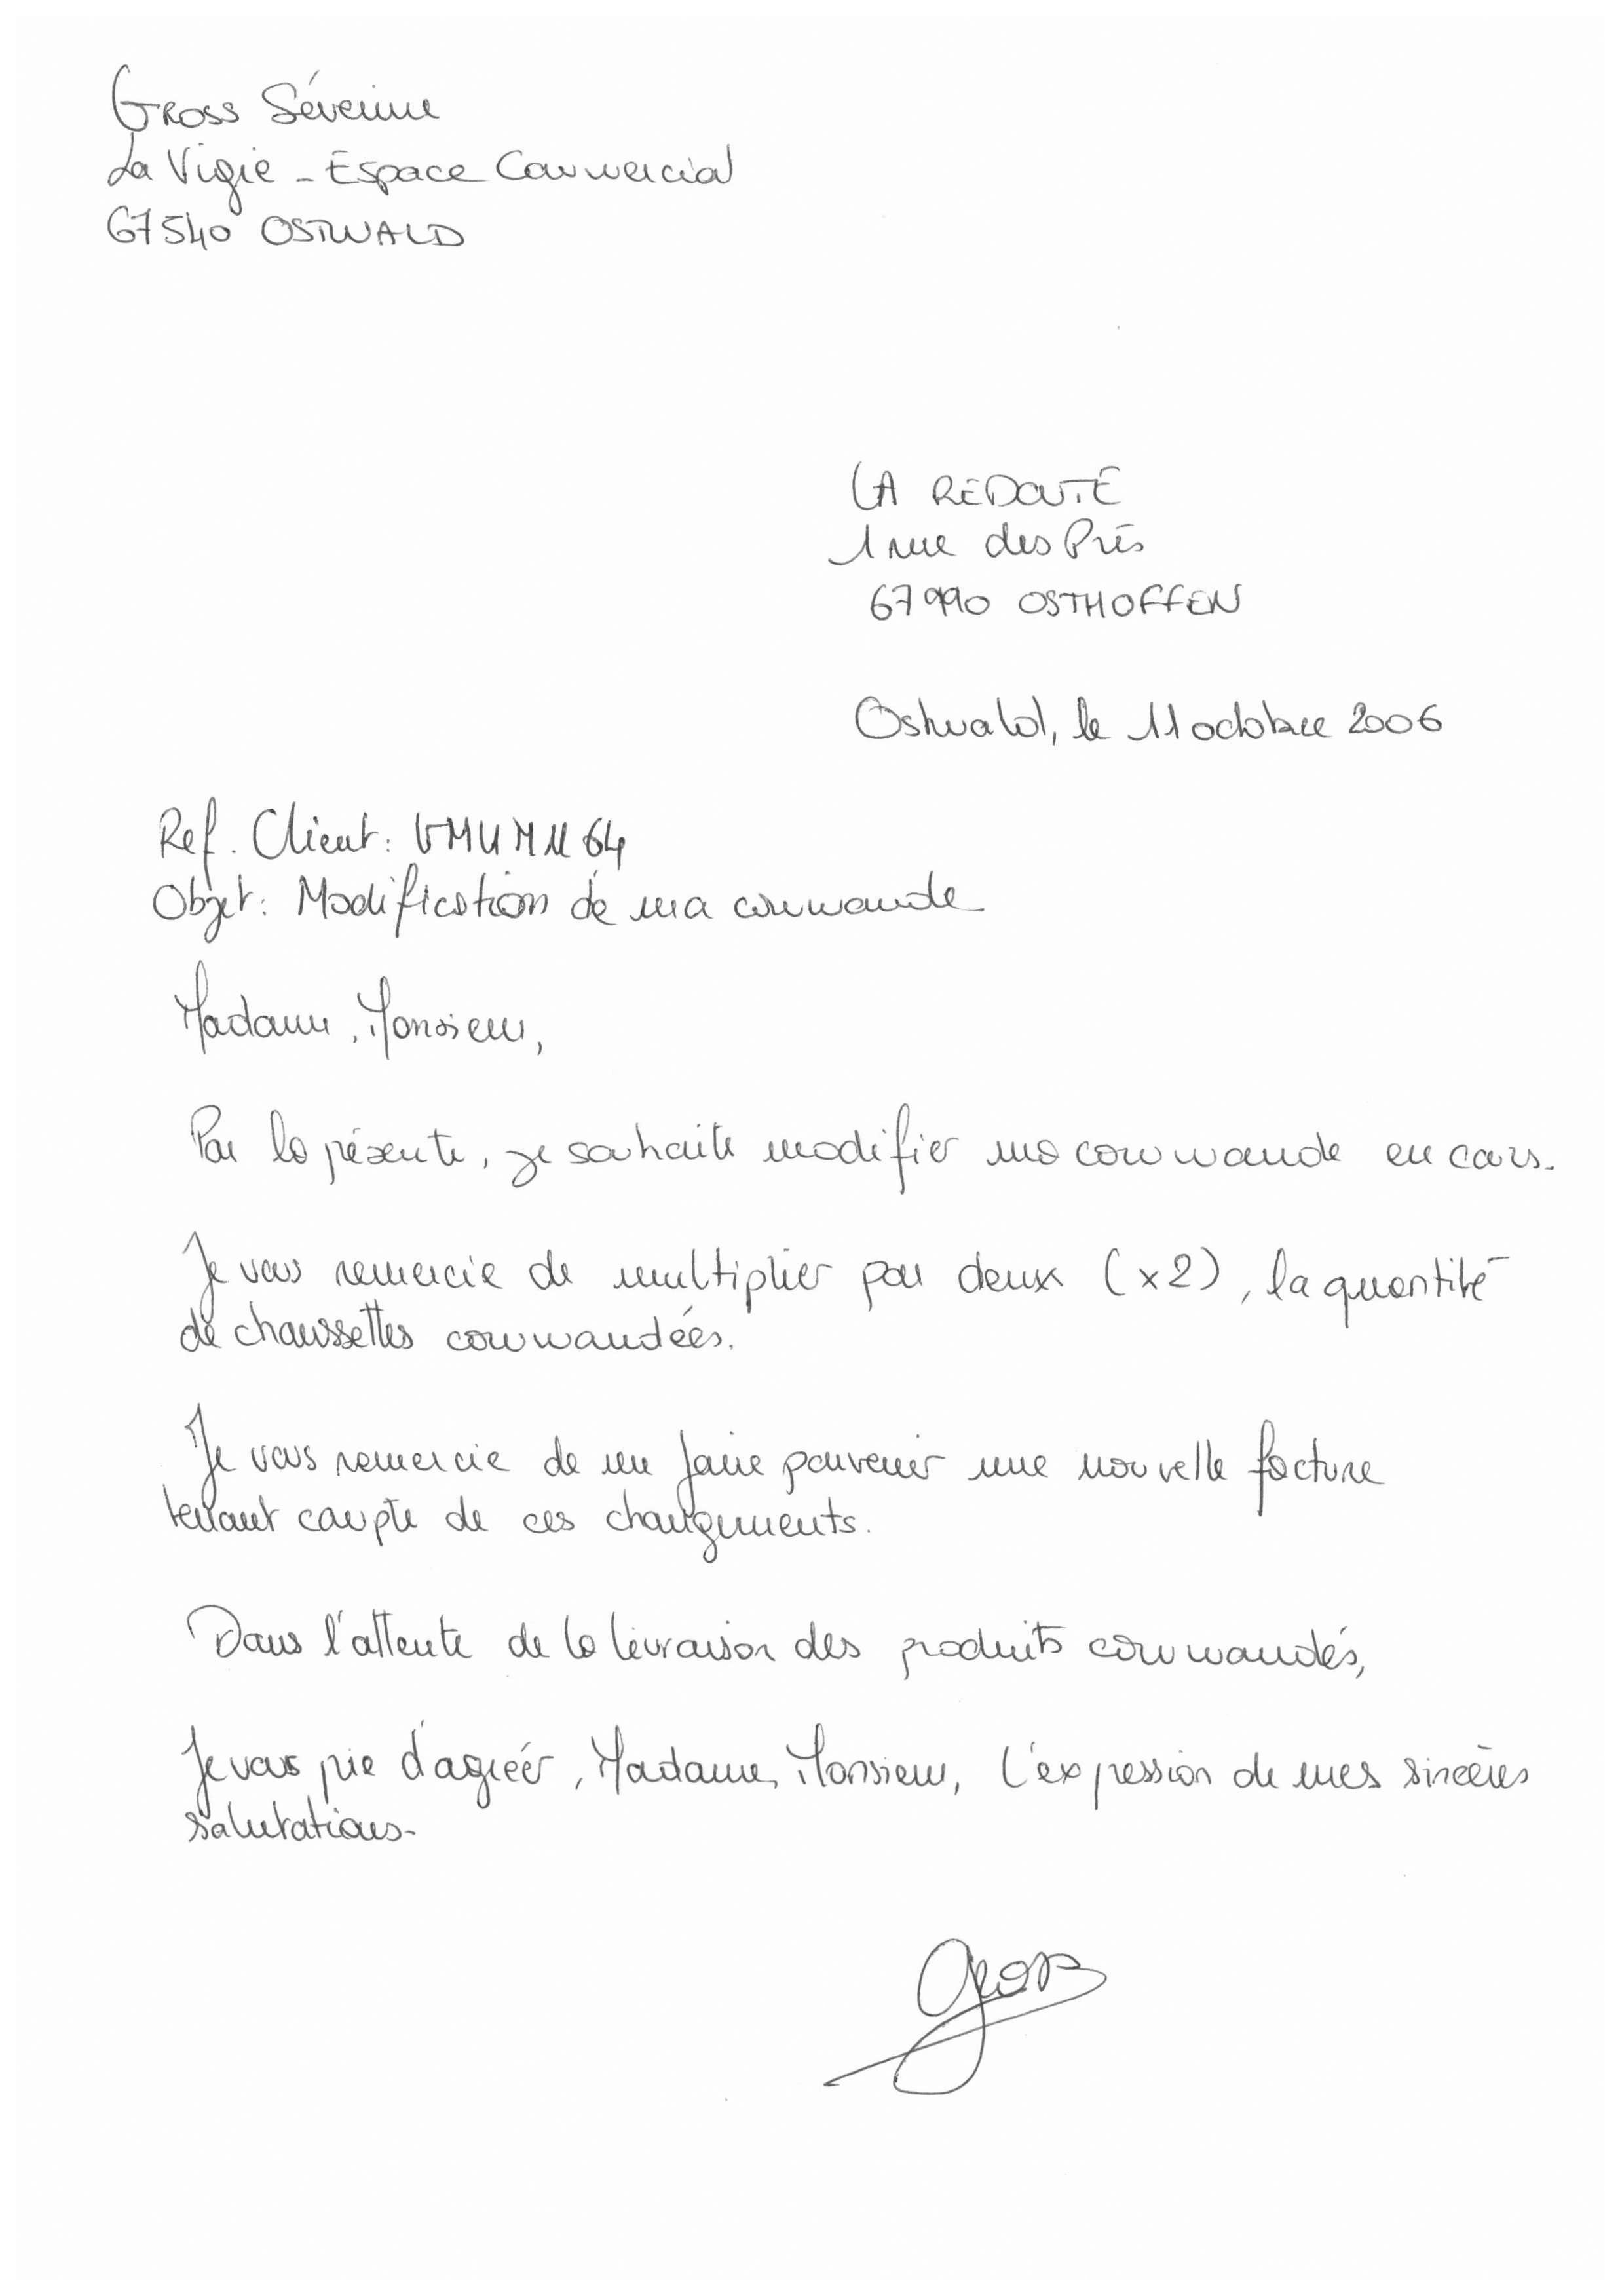 GROSS Séverine
La Vigie - Espace Commercial
67540 OSTWALD
LA REDOUTE
1 rue des Prés
67990 OSTHOFFEN
Ostwald, le 11 octobre 2006
Ref. Client:
Objet: Modification de ma commande
Madame, Monsieur,
Par la présente, je souhaite modifier ma commande en cours.
Je vous remercie de multiplier par deux (x2), la quantité
de chaussettes commandées.
Je vous remercie de me faire parvenir une nouvelle facture
tenant compte de ces changements.
Dans l'attente de la livraison des produits commandés,
Je vous prie d'agréer, Madame, Monsieur, l'expression de mes sincères
salutations.
Gross